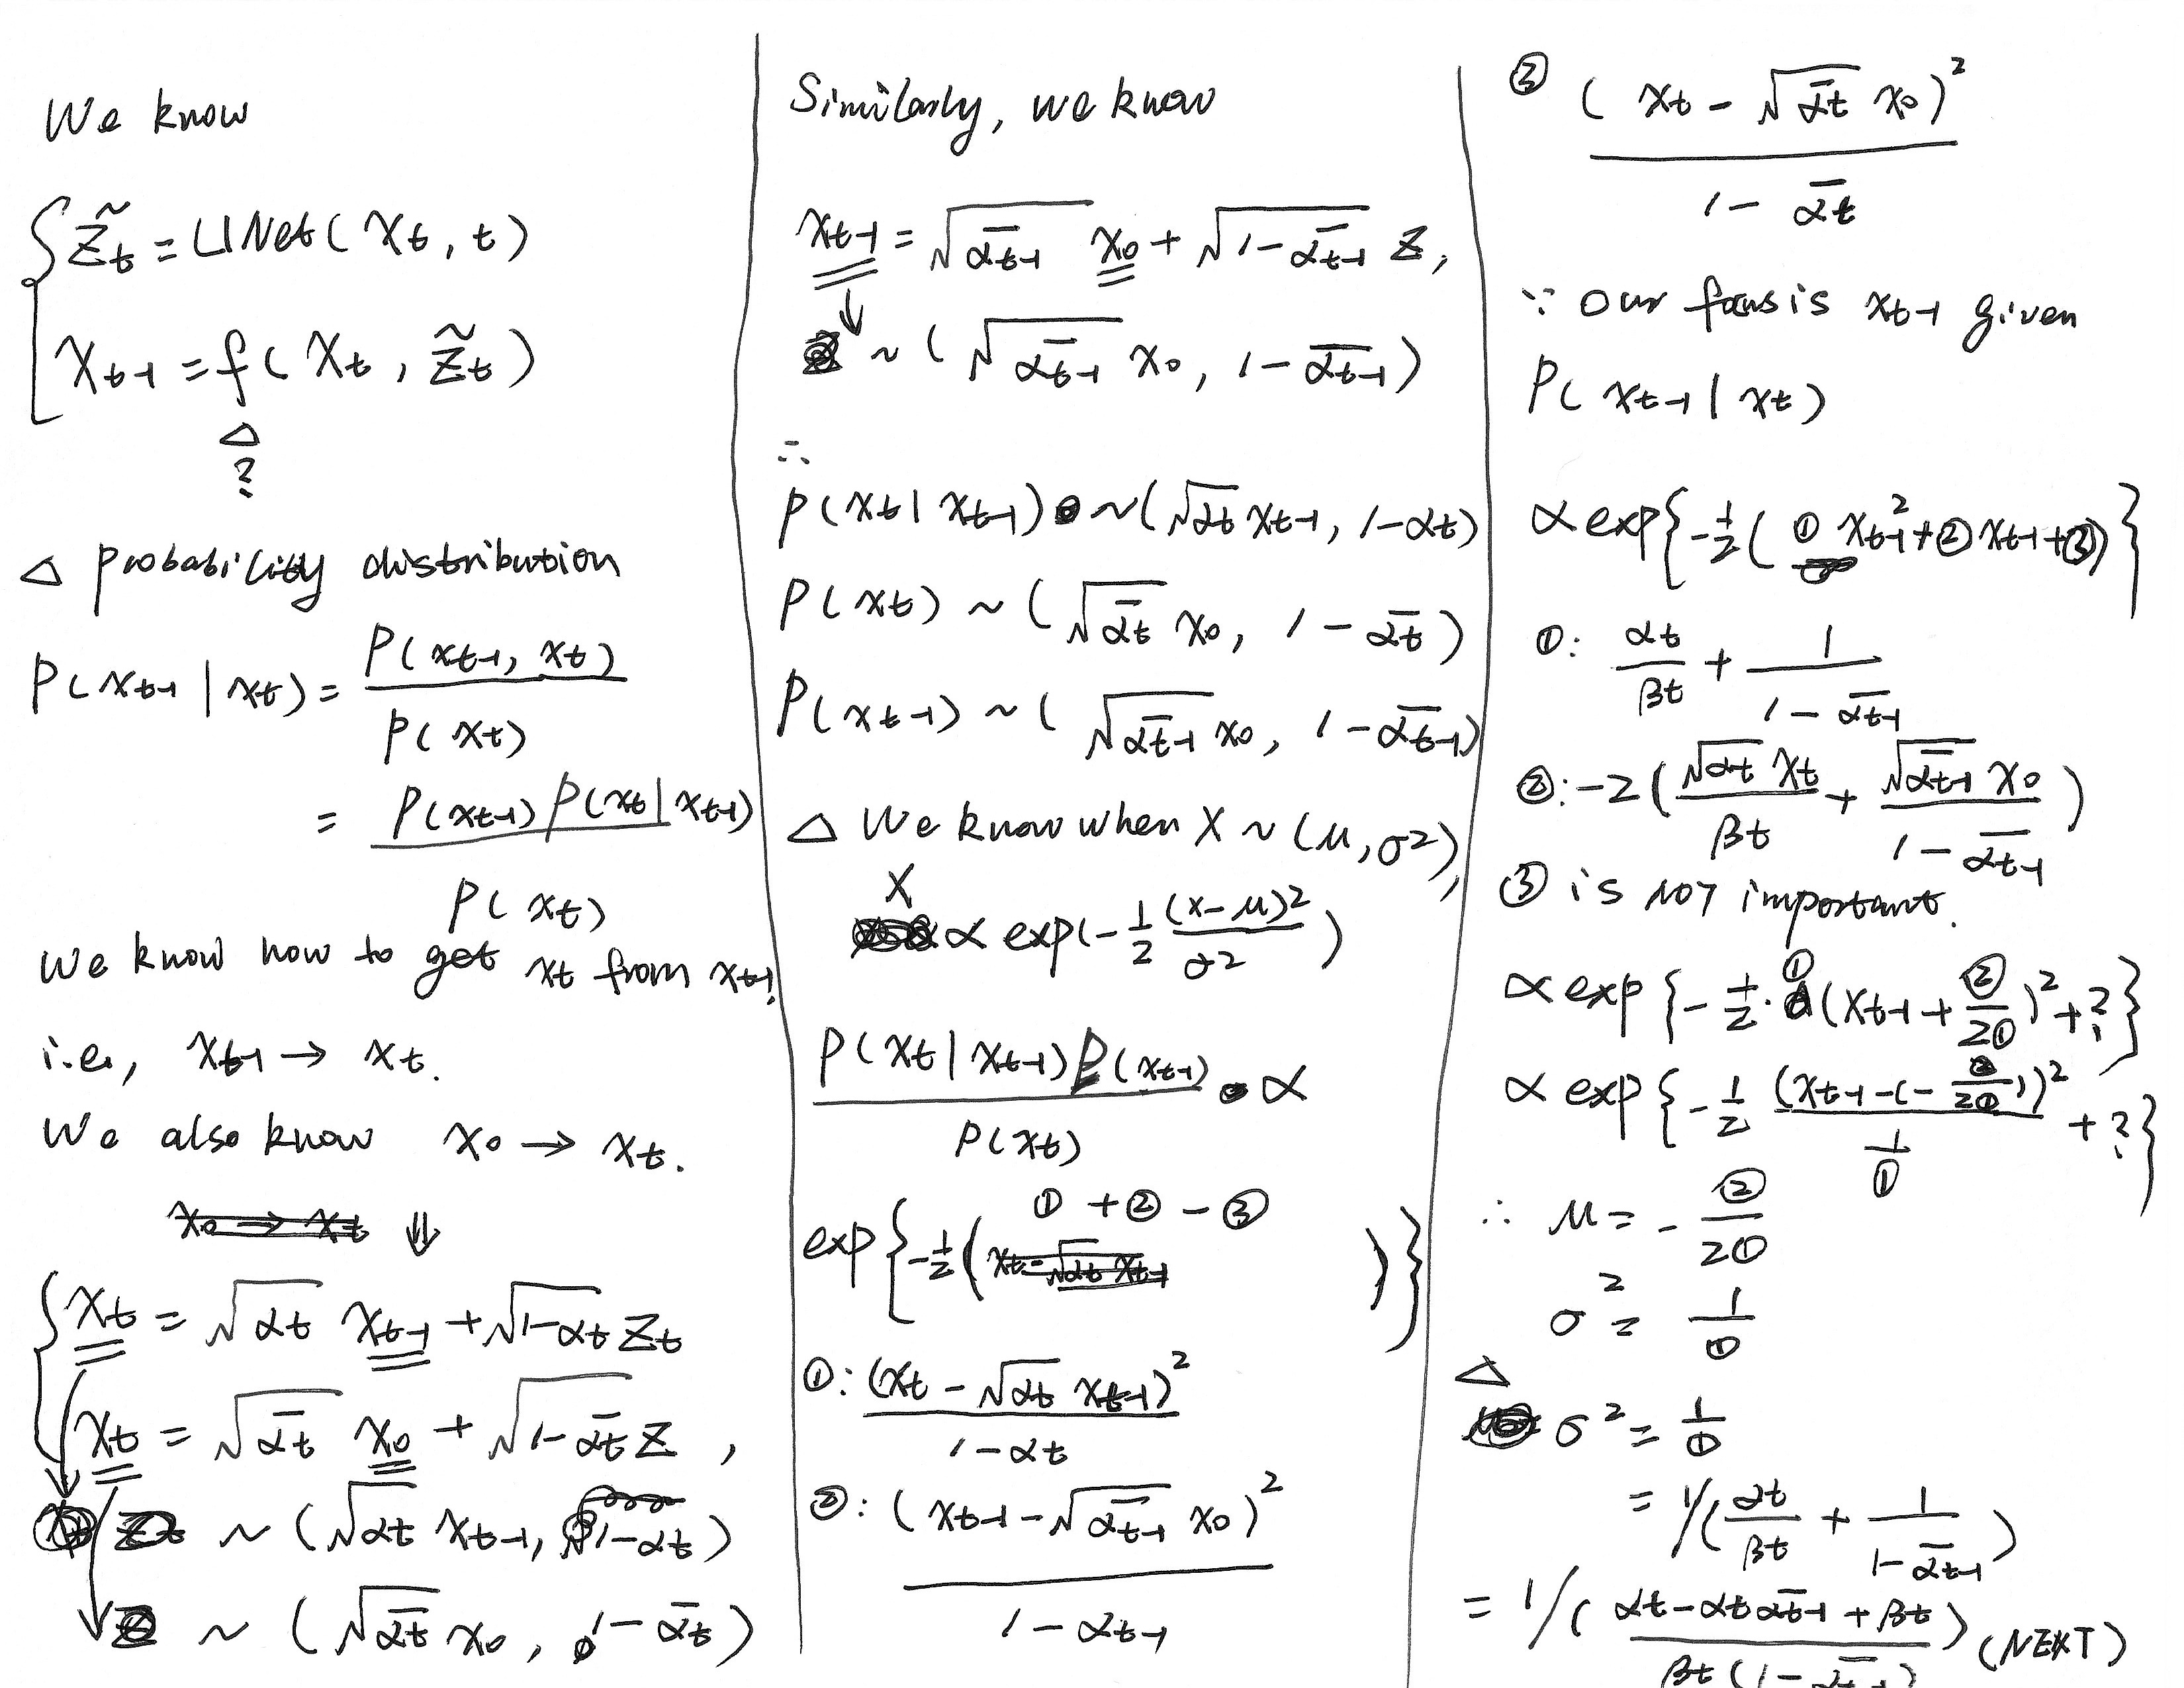 We know
z̃t = UNet( xt, t )
xt-1 = f( xt, z̃t )
△
?
△ probability distribution
P( xt-1 | xt ) = P( xt-1, xt ) / P( xt )
= P(xt-1) P(xt | xt-1) / P( xt )
We know how to get xt from xt-1
i.e., xt-1 → xt.
We also know x0 → xt.
⇓
xt = √αt xt-1 + √1-αt zt
xt = √ᾱt x0 + √1-ᾱt z ,
~ ( √αt xt-1, 1-αt )
~ ( √ᾱt x0, 1-ᾱt )
Similarly, we know
xt-1 = √ᾱt-1 x0 + √1-ᾱt-1 z,
↓
~ ( √ᾱt-1 x0, 1-ᾱt-1 )
∴
P( xt | xt-1 ) ~ ( √αt xt-1, 1-αt )
P( xt ) ~ ( √ᾱt x0, 1-ᾱt )
P( xt-1 ) ~ ( √ᾱt-1 x0, 1-ᾱt-1 )
△ We know when X ~ (μ, σ²),
X ∝ exp( -1/2 (x-μ)² / σ² )
P( xt | xt-1 ) P( xt-1 ) / P( xt ) ∝
exp{ -1/2 ( ① + ② - ③ ) }
①: ( xt - √αt xt-1 )² / 1-αt
②: ( xt-1 - √ᾱt-1 x0 )² / 1-αt-1
③ ( xt - √ᾱt x0 )² / 1-ᾱt
∵ Our focus is xt-1 given
P( xt-1 | xt )
∝ exp{ -1/2 ( ① xt-1² + ② xt-1 + ③ ) }
①: αt / βt + 1 / 1-ᾱt-1
②: -2 ( √αt xt / βt + √ᾱt-1 x0 / 1-ᾱt-1 )
③ is NOT important.
∝ exp { -1/2 · ① ( xt-1 + ② / 2① )² + ? }
∝ exp { -1/2 ( xt-1 - ( - ② / 2① ) )² / 1/① + ? }
∴ μ = - ② / 2①
σ² = 1 / ①
△
σ² = 1 / ①
= 1/( αt / βt + 1 / 1-ᾱt-1 )
= 1/( αt - αt ᾱt-1 + βt / βt ( 1-ᾱt-1 ) ) (NEXT)